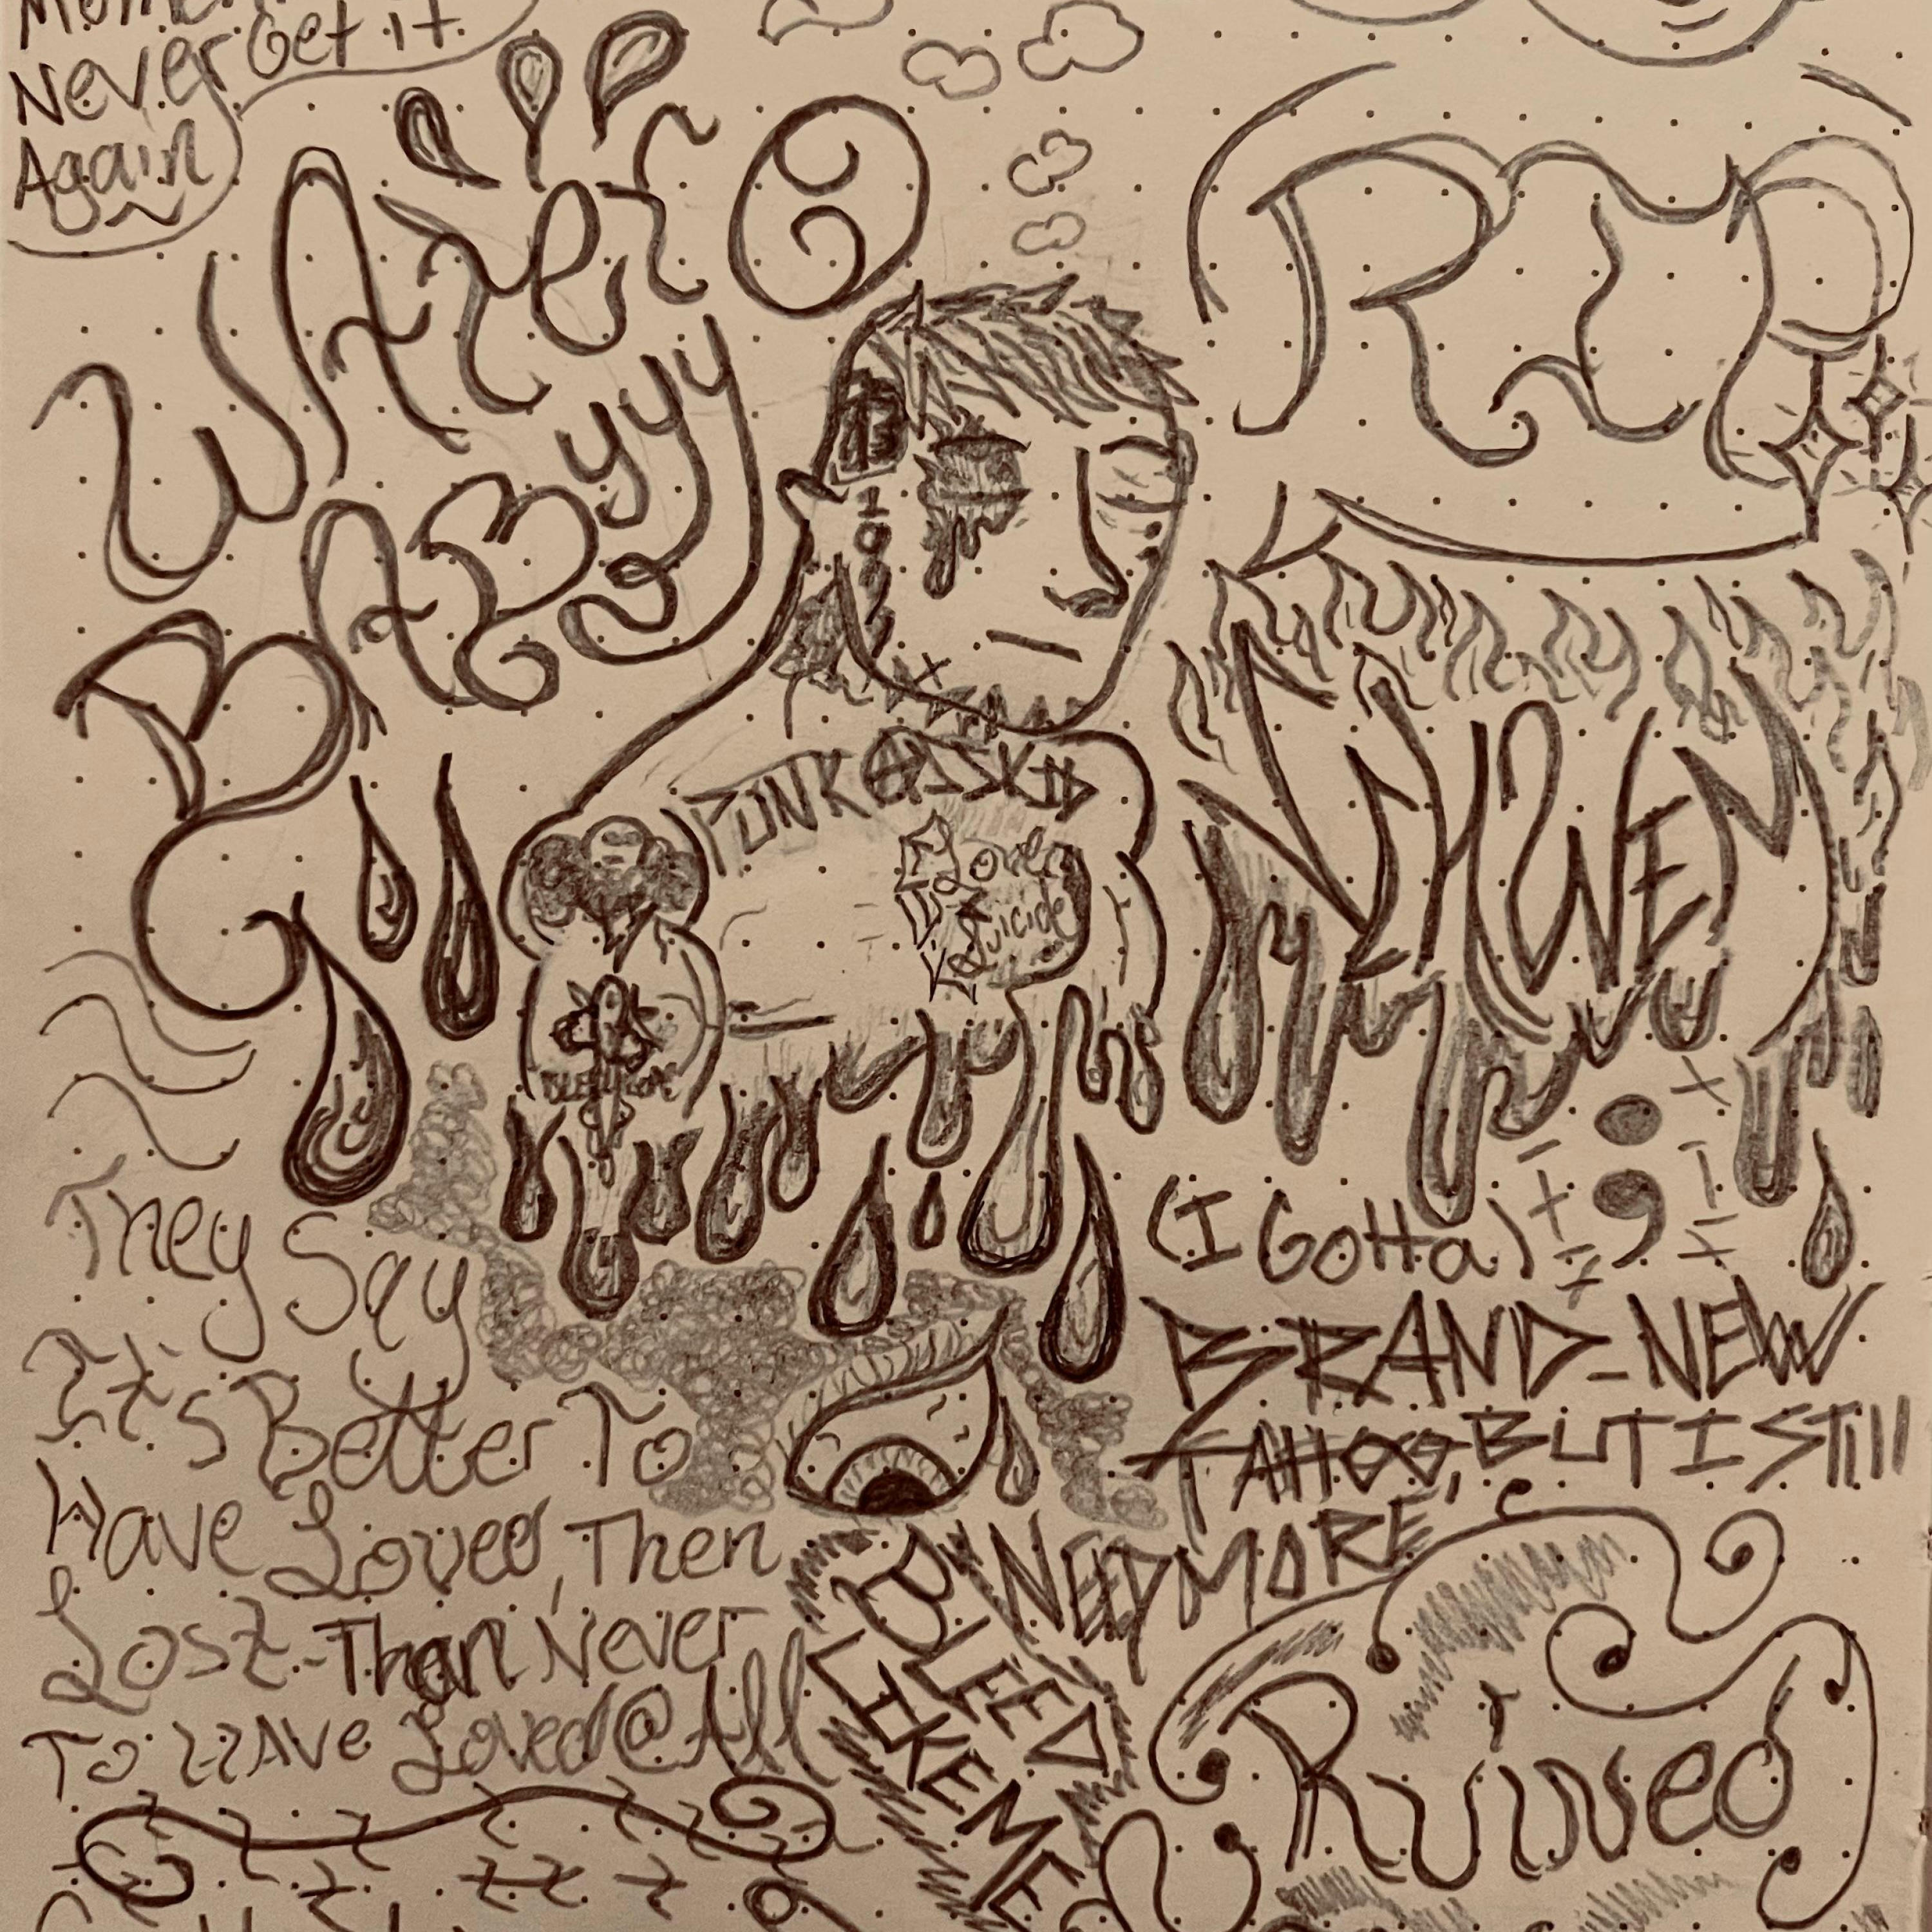 Never Get it
Again
WATER
BAByyy
6
RIP
13
PUNK ASS KID
Lover
Suicide
They Say
It's Better To
Have Loved, Then
Lost-Than Never
To HAVe Loved @ All
(I GOTTA)
;
BRAND-NEW
TATTOO, BUT I STill
NEED MORE
BLEED
LIKE ME
Ruined